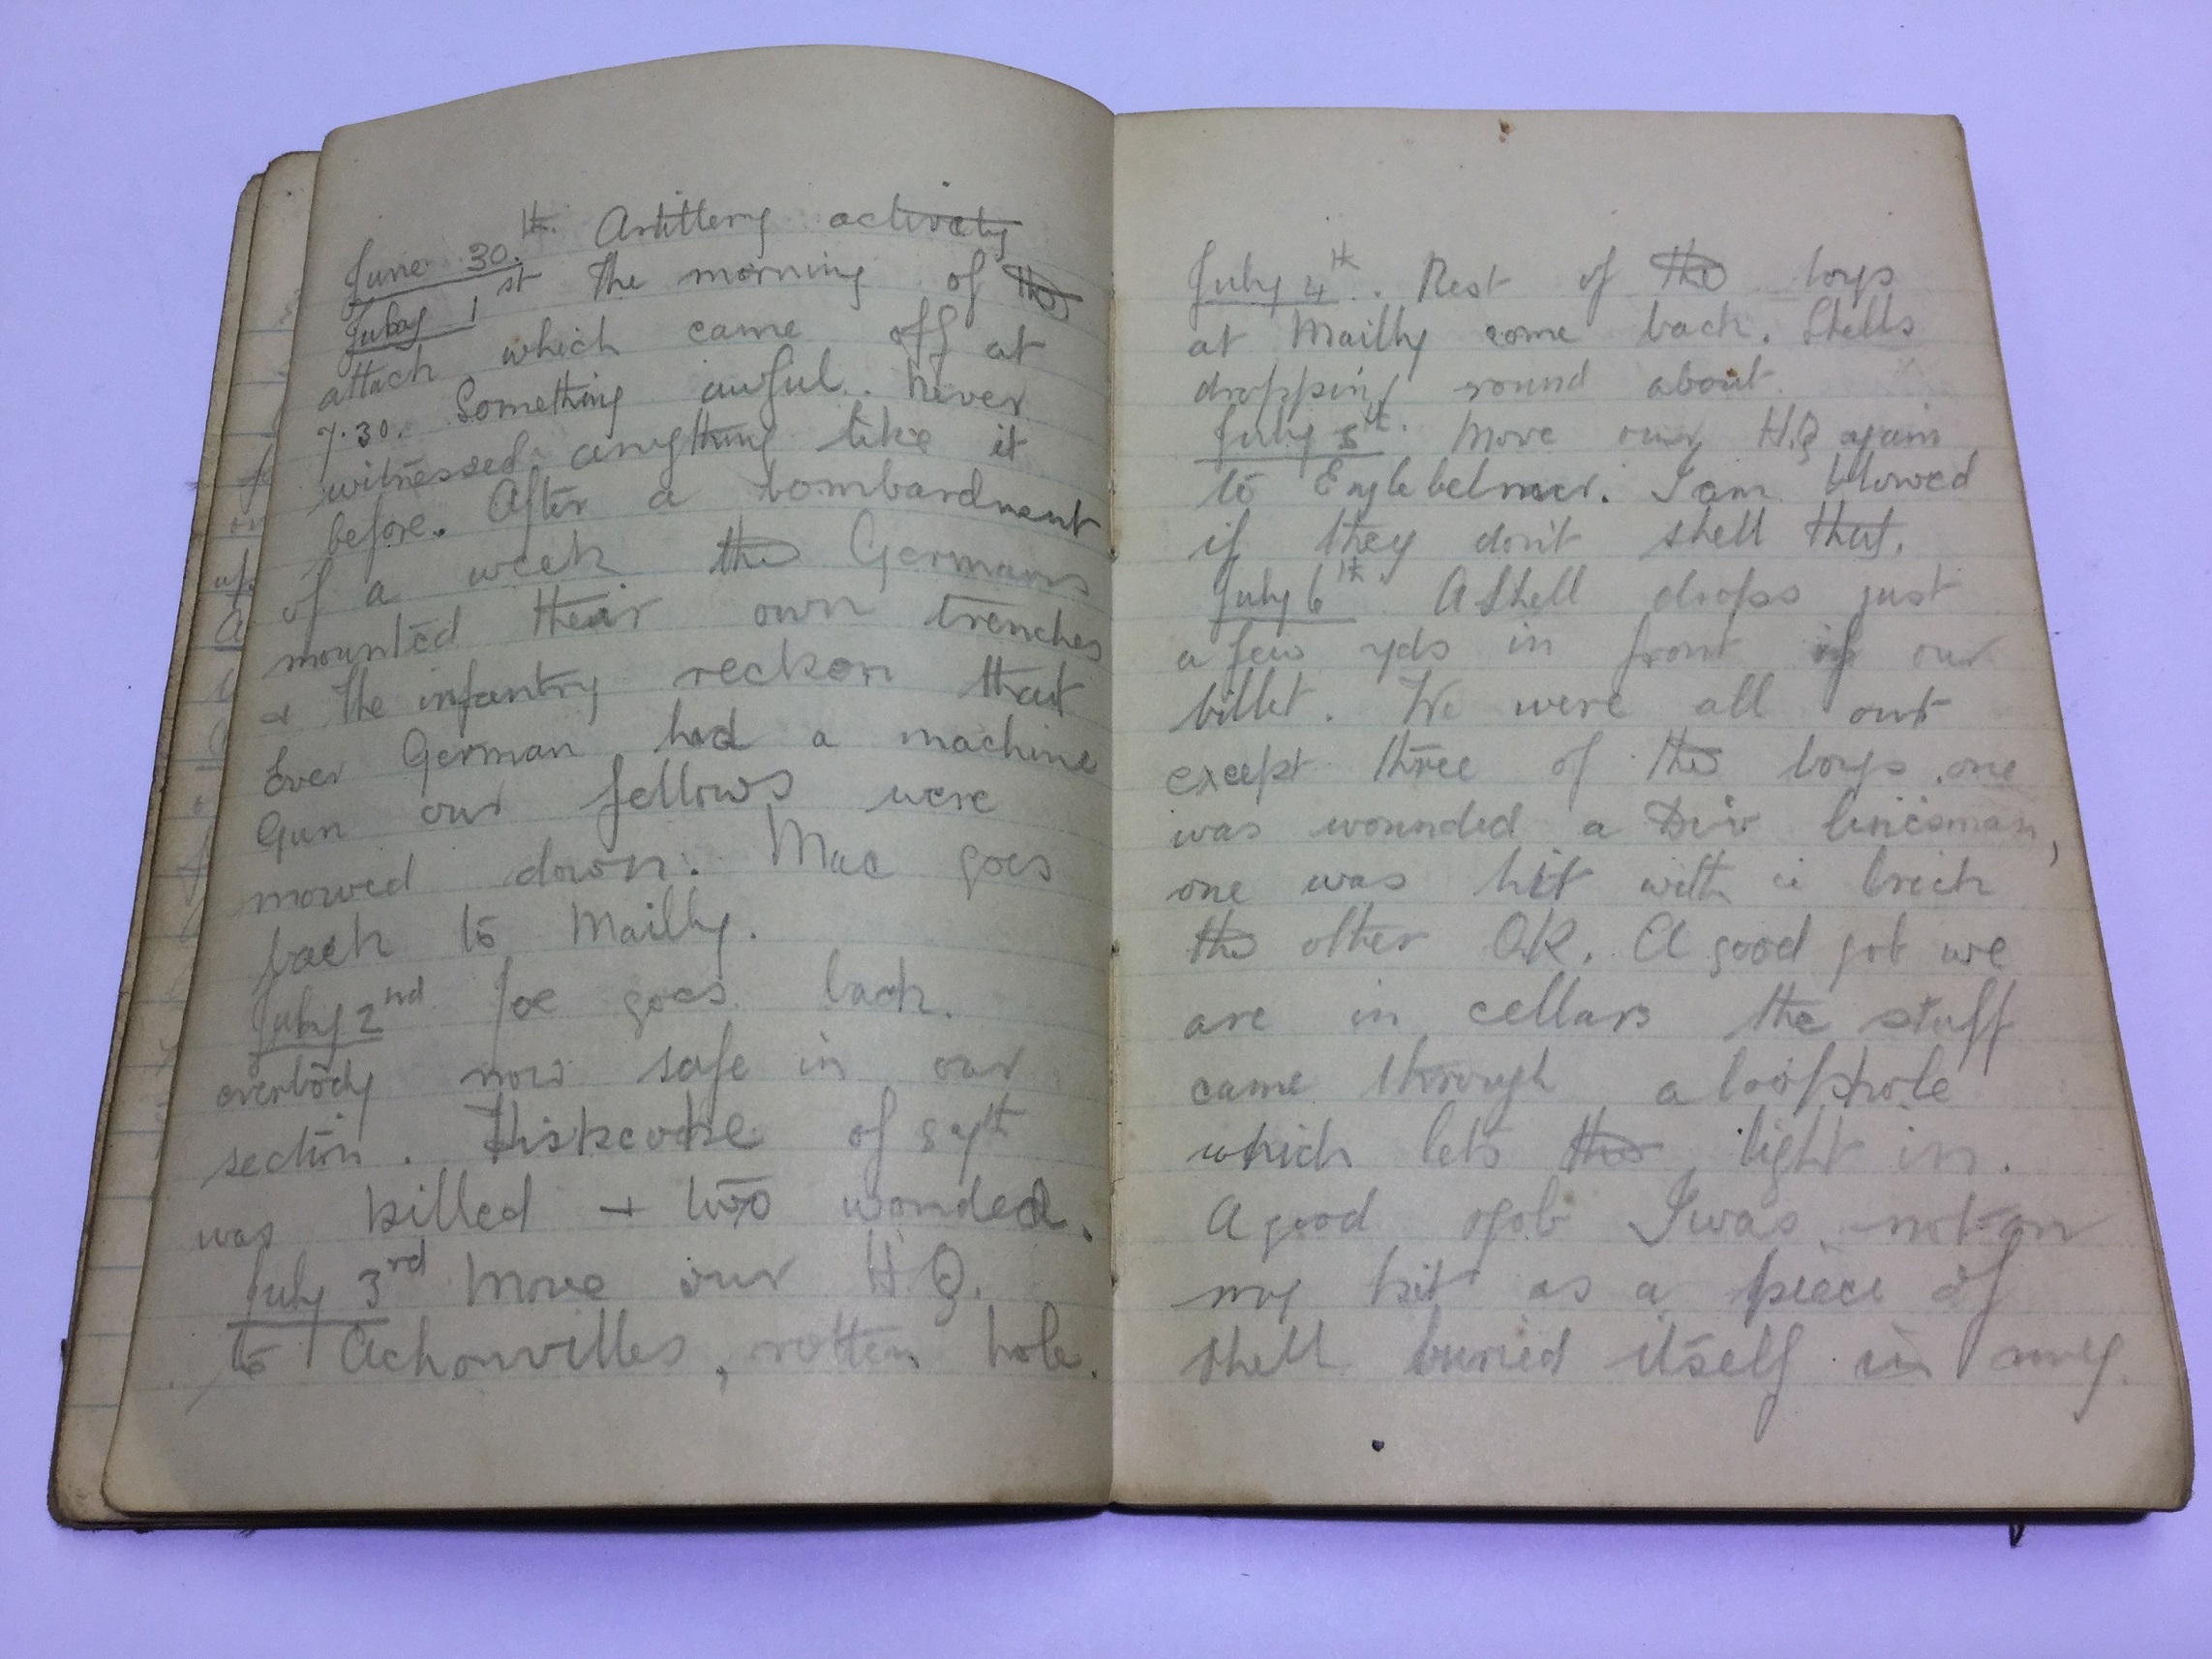 June 30th. Artillery activety
July 1st The morning of the
attack which came off at
7.30. Something awful. Never
witnessed anything like it
before. After a bombardment
of a week the Germans
mounted their own trenches
& the infantry reckon that
Ever German had a machine
Gun our fellows were
mowed down. Mac goes
back to Mailly.
July 2nd Joe goes back.
everbody now safe in our
section. of 87th
was killed + two wonded.
July 3rd Move our H.Q.
to Achonvilles, rotten hole.
July 4th. Rest of the boys
at Mailly come back. Shells
dropping round about.
July 5th. Move our H.Q again
to Englebelmer. I am blowed
if they don't shell that.
July 6th. A Shell drops just
a few yds in front of our
billet. We were all out
except three of the boys. one
was wounded a Div linesman,
one was hit with a brick
the other OK. A good gob we
are in cellars the stuff
came through a loophole
which lets the light in.
A good gob I was not on
my kit as a piece of
shell buried itself in my